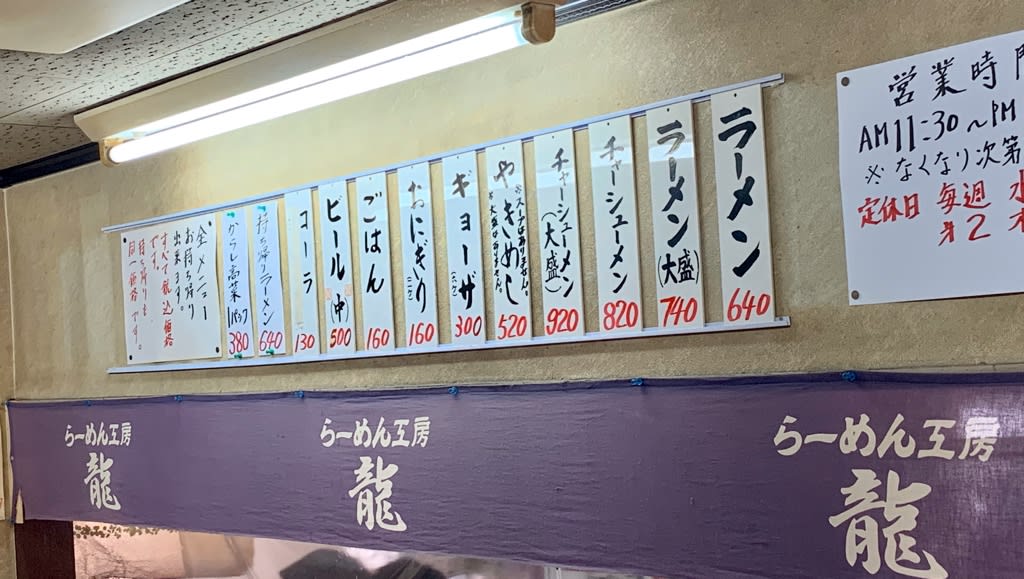 ラーメン
640
ラーメン(大盛)
740
チャーシューメン
820
チャーシューメン(大盛)
920
やきめし
※スープは付けません。
520
ギョーザ
300
おにぎり
160
ごはん
160
ビール(中)
500
コーラ
130
持ち帰りラーメン
640
からし高菜 1パック
380
全メニュー
お持ち帰り
出来ます。
すべて税込価格
です。
持ち帰りも
同一価格です。
営業時
AM11:30~PM
※なくなり次第
定休日 毎週
第2
らーめん工房
龍
らーめん工房
龍
らーめん工房
龍